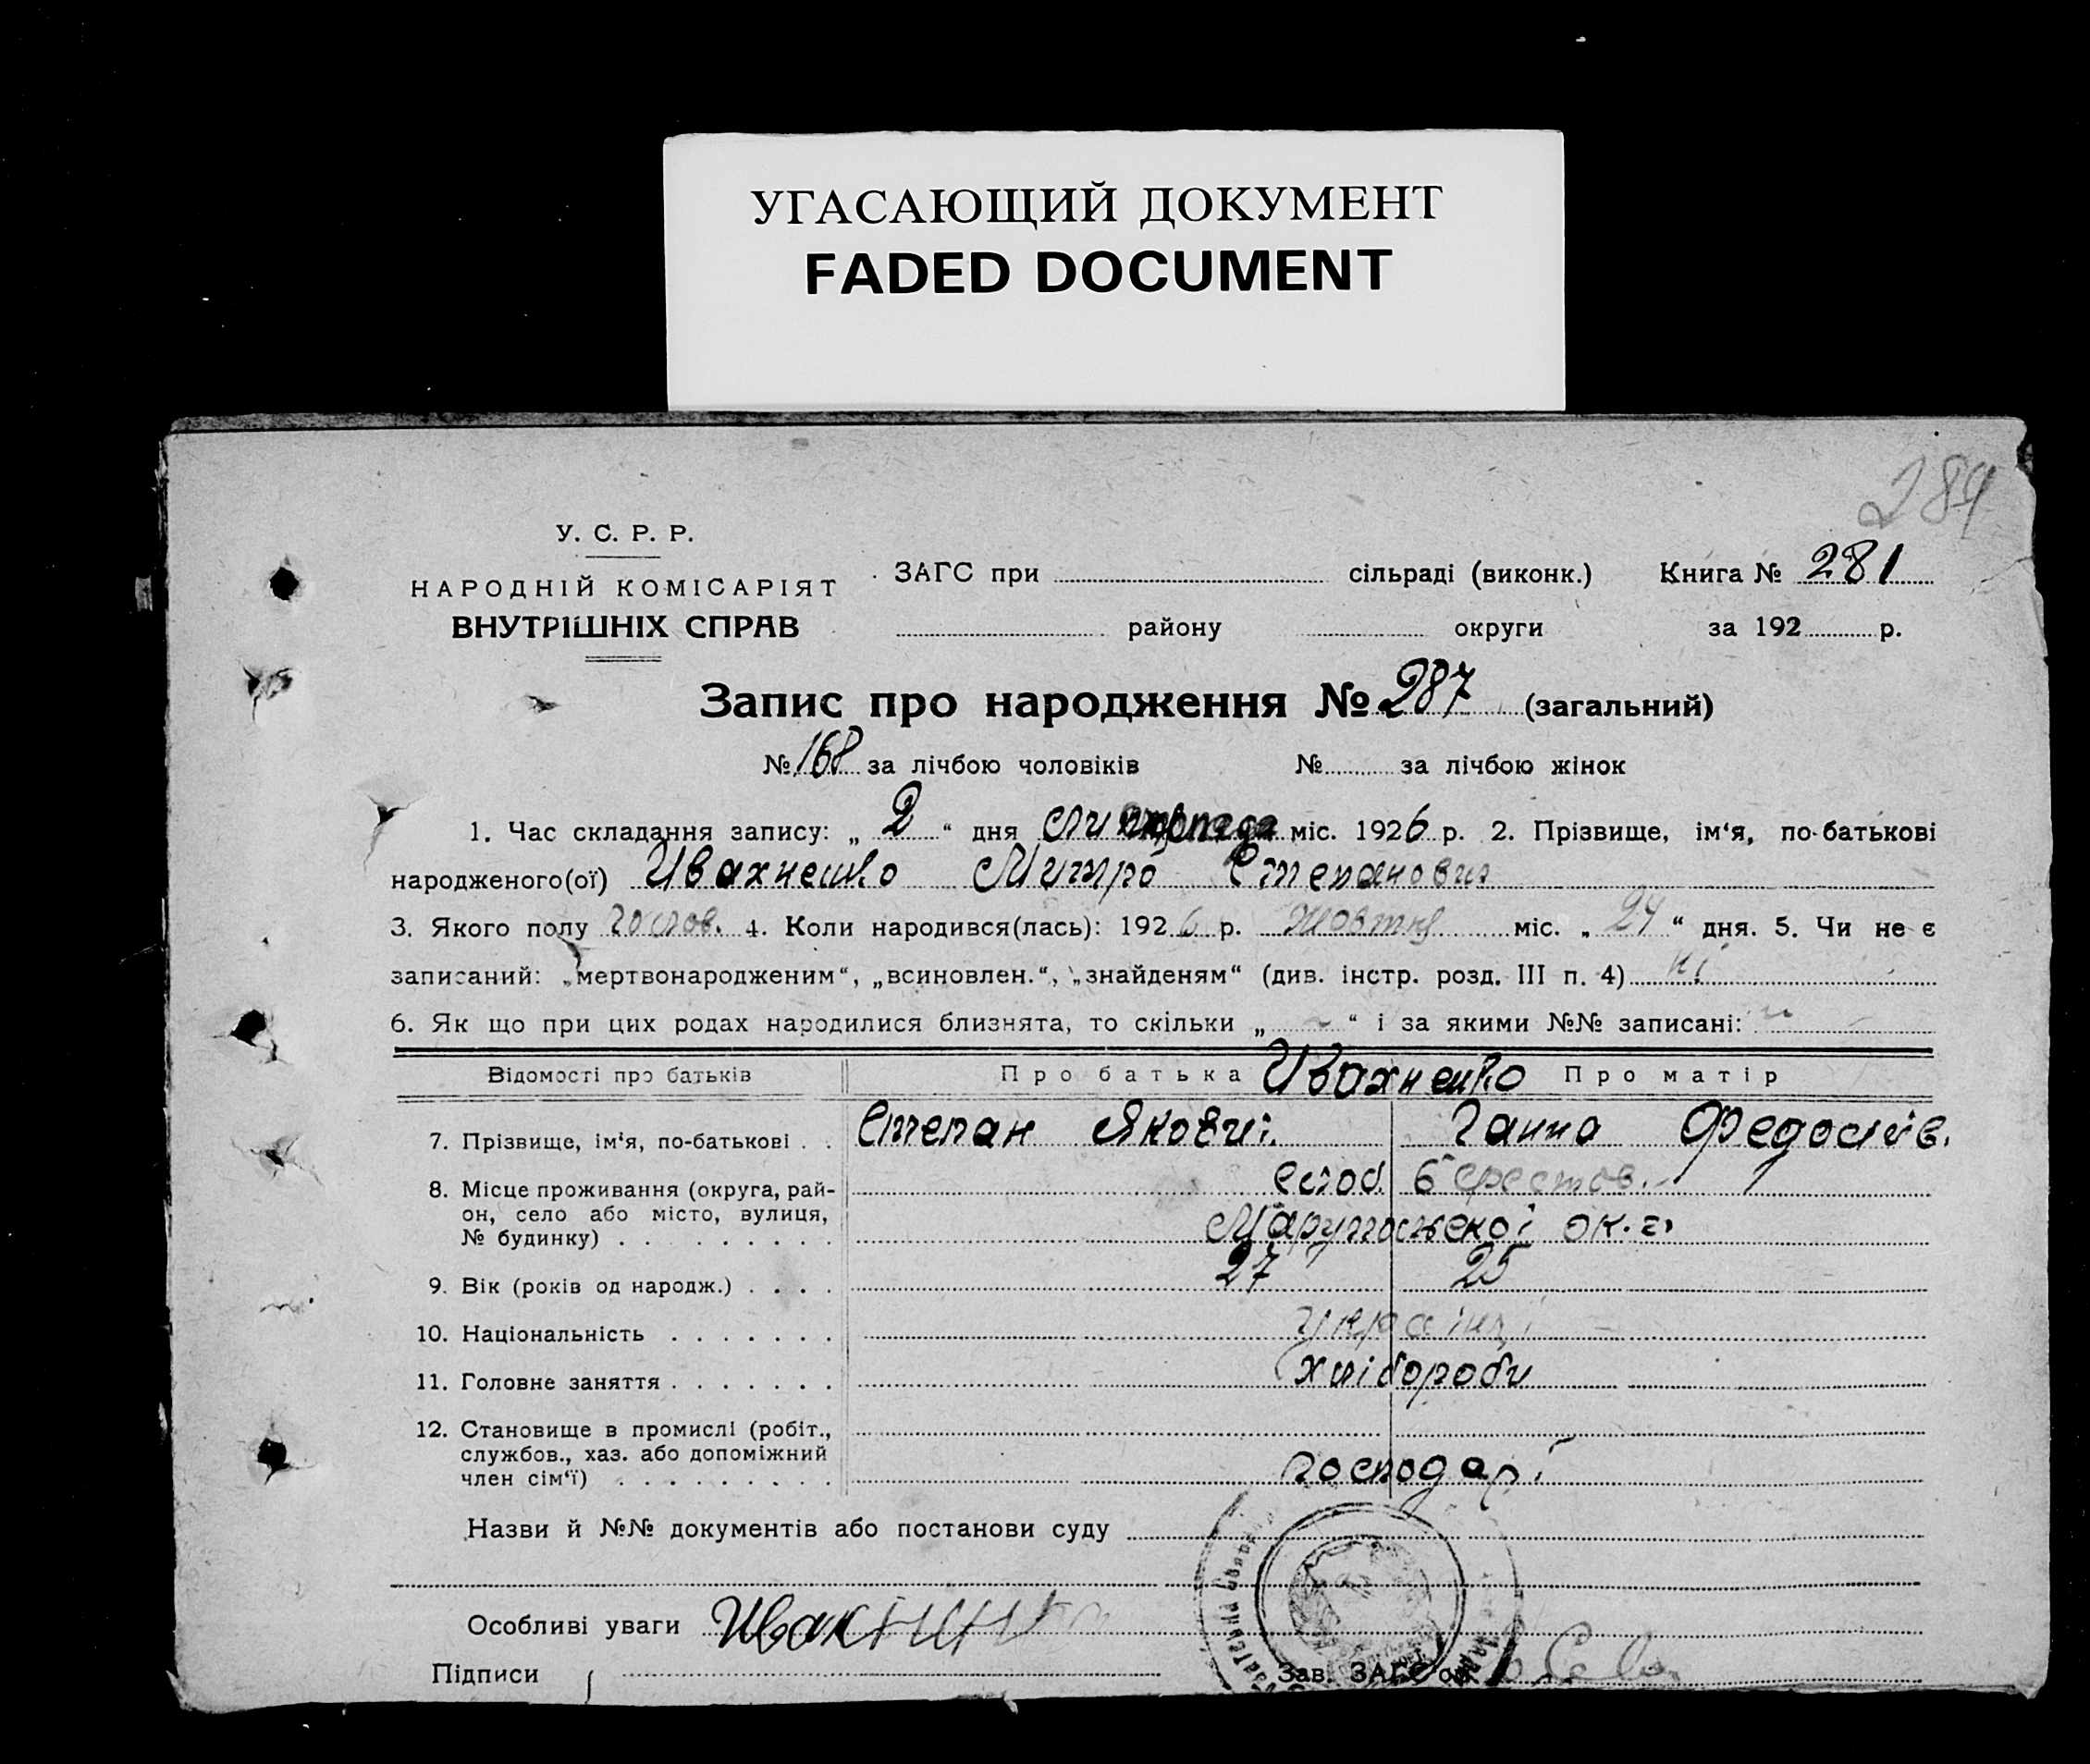 УГАСАЮЩИЙ ДОКУМЕНТ
FADED DOCUMENT
289
У. С. Р. Р.
НАРОДНІЙ КОМІСАРІЯТ
ВНУТРІШНІХ СПРАВ
ЗАГС при сільраді (виконк.) Книга № 281
району округи за 192 р.
Запис про народження № 287 (загальний)
№ 168 за лічбою чоловіків № за лічбою жінок
1. Час складання запису: „ 2 “ дня міс. 1926 р. 2. Прізвище, ім‘я, по-батькові
народженого(ої) Ивахненко Митро Степанович
3. Якого полу 4. Коли народився(лась): 1926 р. жовтня міс. „ 24 “ дня. 5. Чи не є
записаний: „мертвонародженим“, „всиновлен.“, „знайденям“ (див. інстр. розд. III п. 4) ні
6. Як що при цих родах народилися близнята, то скільки „ “ і за якими №№ записані:
Відомості про батьків Про батька Ивахненко Про матір
7. Прізвище, ім‘я, по-батькові . . Степан Якович. Ганна Федосіїв.
8. Місце проживання (округа, рай-
он, село або місто, вулиця,
№ будинку) . . . . . . . . .
слоб. Берестов.
ок-г
9. Вік (років од народж.) . . . . 27 25
10. Національність . . . . . . . українці
11. Головне заняття . . . . . . . хлібороби
12. Становище в промислі (робіт.,
службов., хаз. або допоміжний
член сім‘ї) . . . . . . . . . господарі
Назви й №№ документів або постанови суду
Особливі уваги
Підписи Зав. ЗАГС‘ом